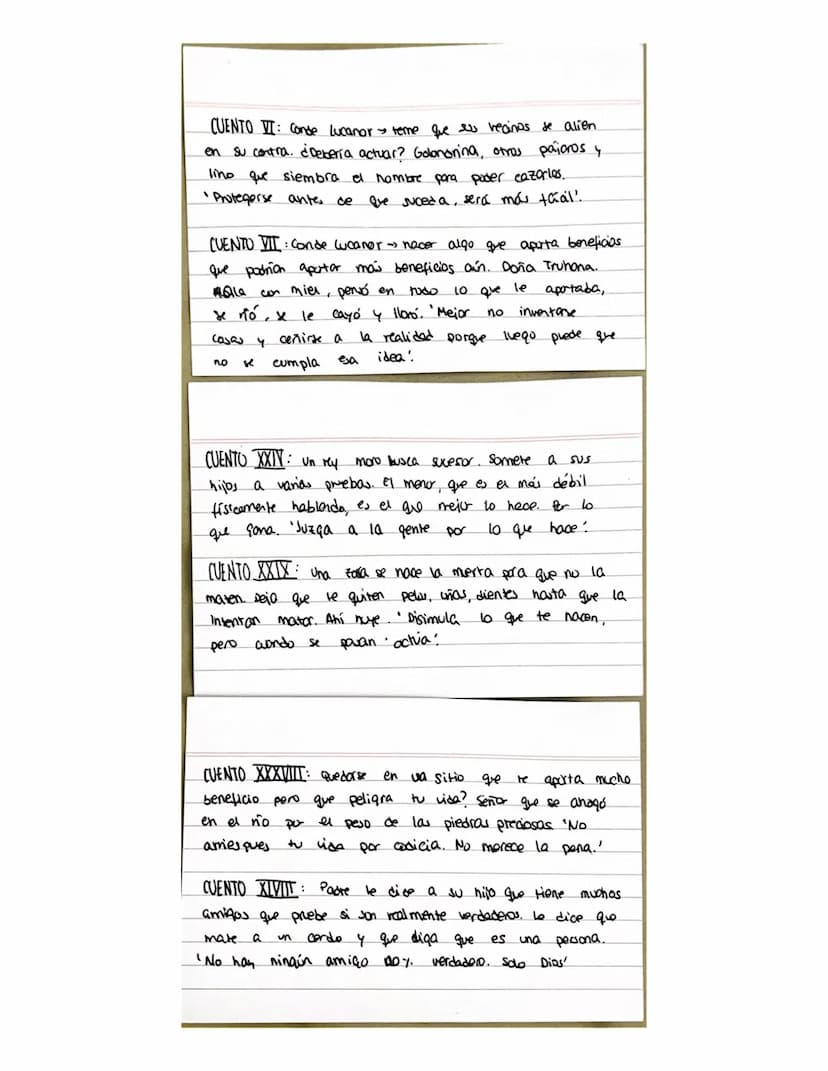 CUENTO VI: Conde Lucanor → teme que sus vecinos se alíen
en su contra. ¿Debería actuar? Golondrina, otros pájaros y
lino que siembra el hombre para poder cazarlos.
'Protegerse antes de que suceda, será más fácil'.
CUENTO VII: Conde Lucanor → hacer algo que aporta beneficios
que podrían aportar más beneficios aún. Doña Truhana.
Olla con miel, pensó en todo lo que le aportaba,
se rió, se le cayó y lloró. 'Mejor no inventarse
cosas y ceñirse a la realidad porque luego puede que
no se cumpla esa idea'.
CUENTO XXIV: Un rey moro busca sucesor. Somete a sus
hijos a varias pruebas. El menor, que es el más débil
físicamente hablando, es el que mejor lo hace. Por lo
que gana. 'Juzga a la gente por lo que hace'.
CUENTO XXIX: Una zorra se hace la muerta para que no la
maten. Deja que le quiten pelos, uñas, dientes hasta que la
intentan matar. Ahí huye. 'Disimula lo que te hacen,
pero cuando se pasan actúa'.
CUENTO XXXVIII: Quedarse en un sitio que te aporta mucho
beneficio pero que peligra tu vida? Señor que se ahogó
en el río por el peso de las piedras preciosas. 'No
arriesgues tu vida por codicia. No merece la pena.'
CUENTO XLVIII: Padre le dice a su hijo que tiene muchos
amigos que pruebe si son realmente verdaderos. Le dice que
mate a un cerdo y que diga que es una persona.
'No hay ningún amigo 100% verdadero. Solo Dios'